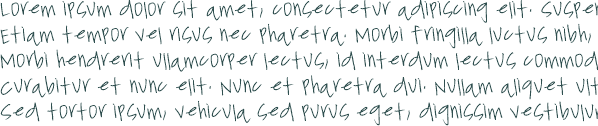 Lorem ipsum dolor sit amet, consectetur adipiscing elit. Susper
Etiam tempor vel risus nec pharetra. Morbi fringilla luctus nibh,
Morbi hendrerit ullamcorper lectus, id interdum lectus commod
curabitur et nunc elit. Nunc et pharetra dui. Nullam aliquet ult
sed tortor ipsum, vehicula sed purus eget, dignissim vestibulu